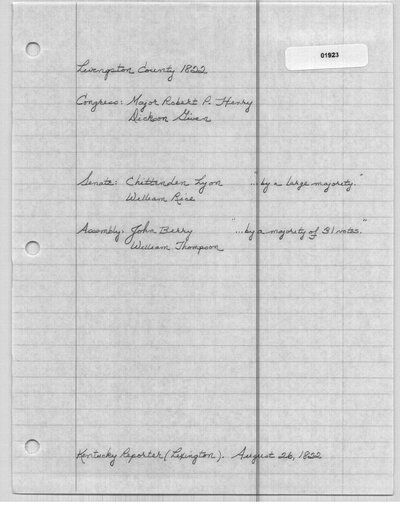 01923
Livingston County 1822
Congress: Major Robert P. Henry
Dickson Given
Senate: Chittenden Lyon "...by a large majority."
William Rice
Assembly: John Berry "...by a majority of 31 votes."
William Thompson
Kentucky Reporter (Lexington). August 26, 1822